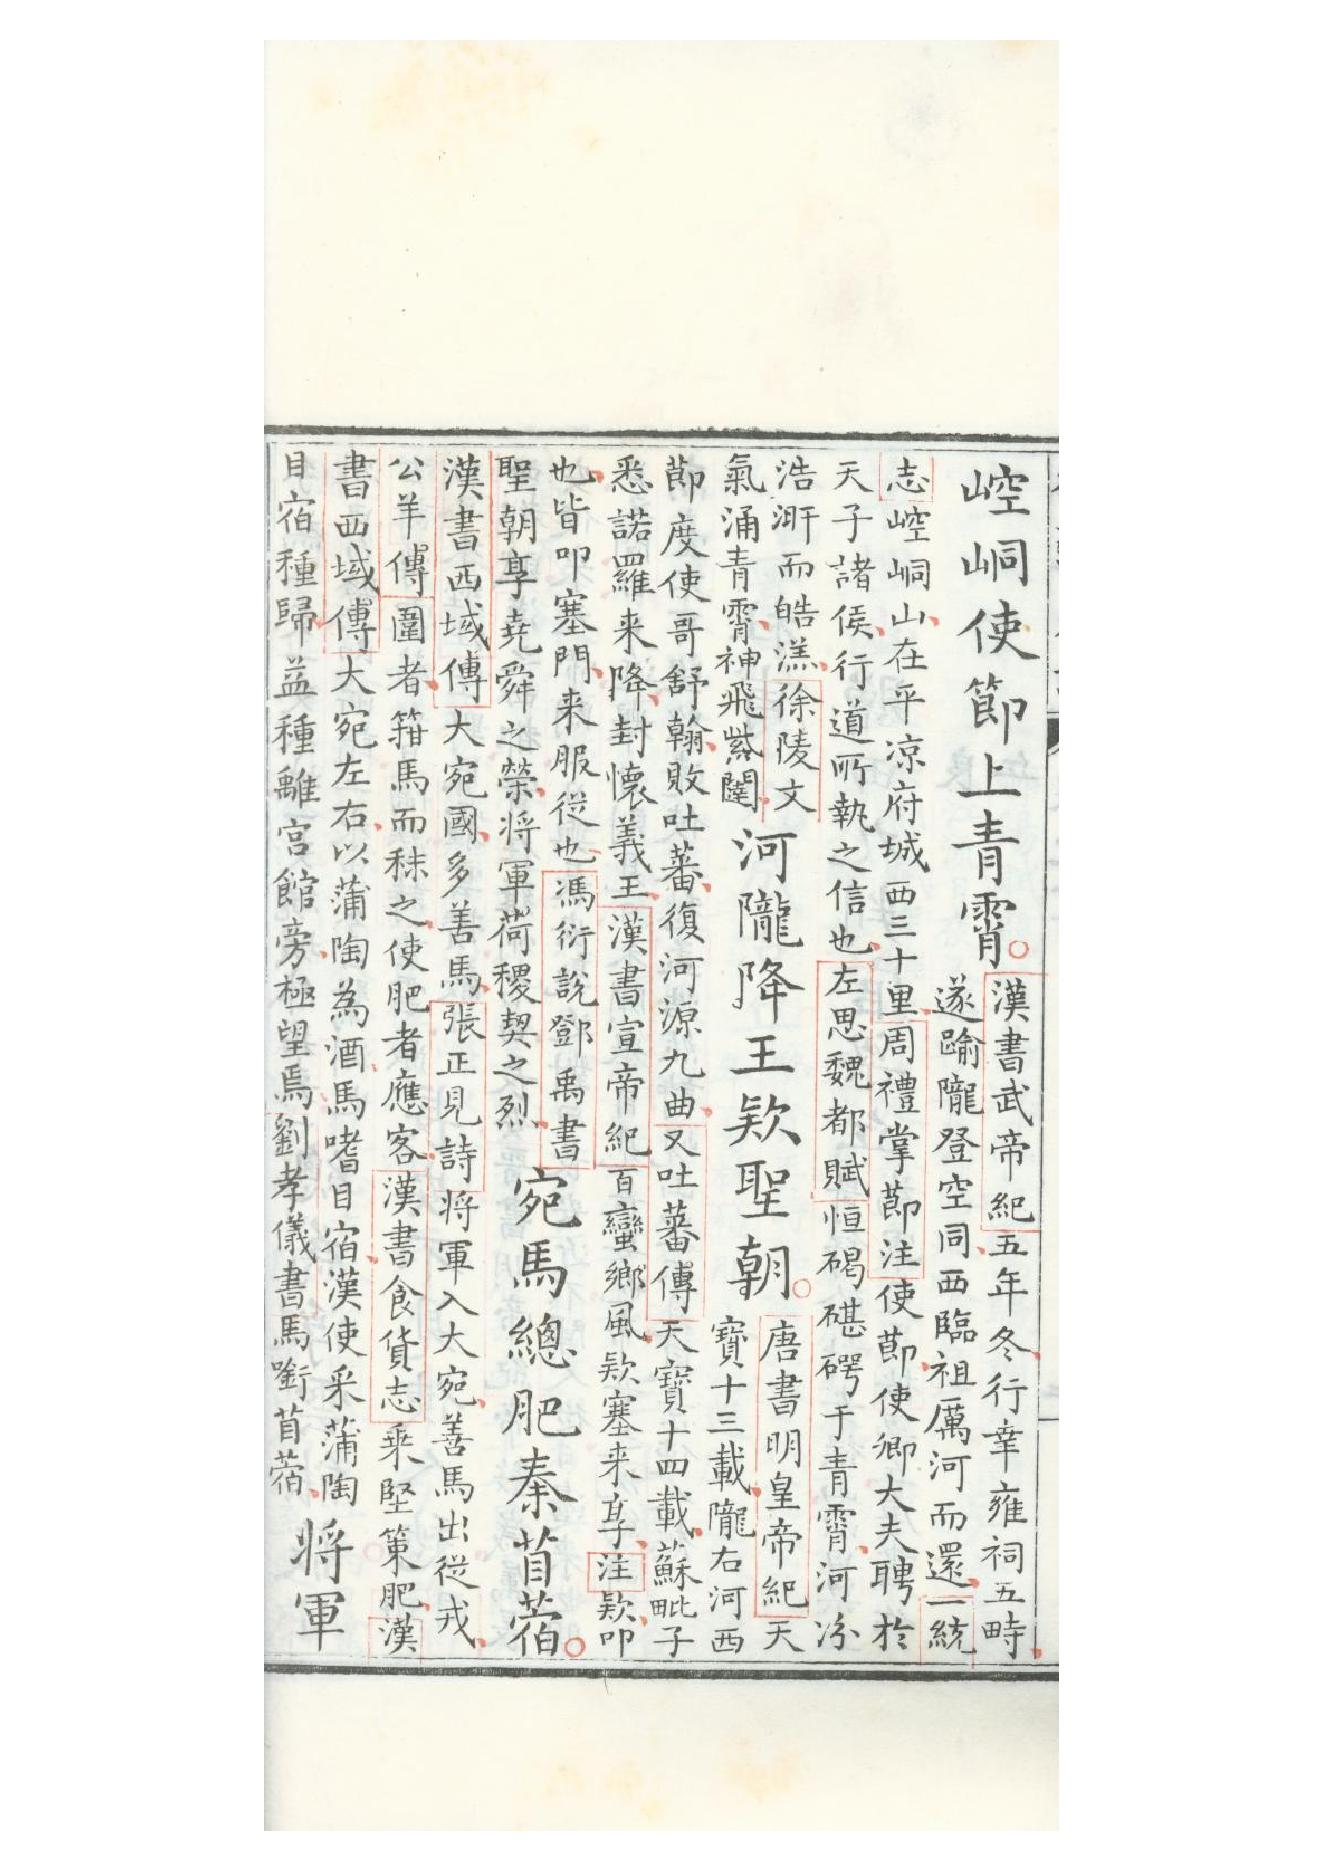 崆峒使節上青霄
漢書武帝紀五年冬行幸雍祠五畤
遂踰隴登空同西臨祖厲河而還一統
志崆峒山在平凉府城西三十里周禮掌節注使節使卿大夫聘於
天子諸侯行道所執之信也左思魏都賦恒碣碪㟧于青霄河汾
浩涆而皓溔徐陵文
氣涌青霄神飛紫闥
河隴降王欵聖朝
唐書明皇帝紀天
寶十三載隴右河西
節度使哥舒翰敗吐蕃復河源九曲又吐蕃傳天寶十四載蘇毗子
悉諾羅来降封懷義王漢書宣帝紀百蠻鄉風欵塞来享注欵叩
也皆叩塞門来服從也馮衍說鄧禹書
聖朝享堯舜之榮将軍荷稷契之烈
宛馬總肥秦苜蓿
漢書西域傳大宛國多善馬張正見詩将軍入大宛善馬出從戎
公羊傳圍者箝馬而秣之使肥者應客漢書食貨志乘堅策肥漢
書西域傳大宛左右以蒲陶為酒馬嗜目宿漢使采蒲陶
目宿種歸益種離宮館旁極望焉劉孝儀書馬銜苜蓿
将軍